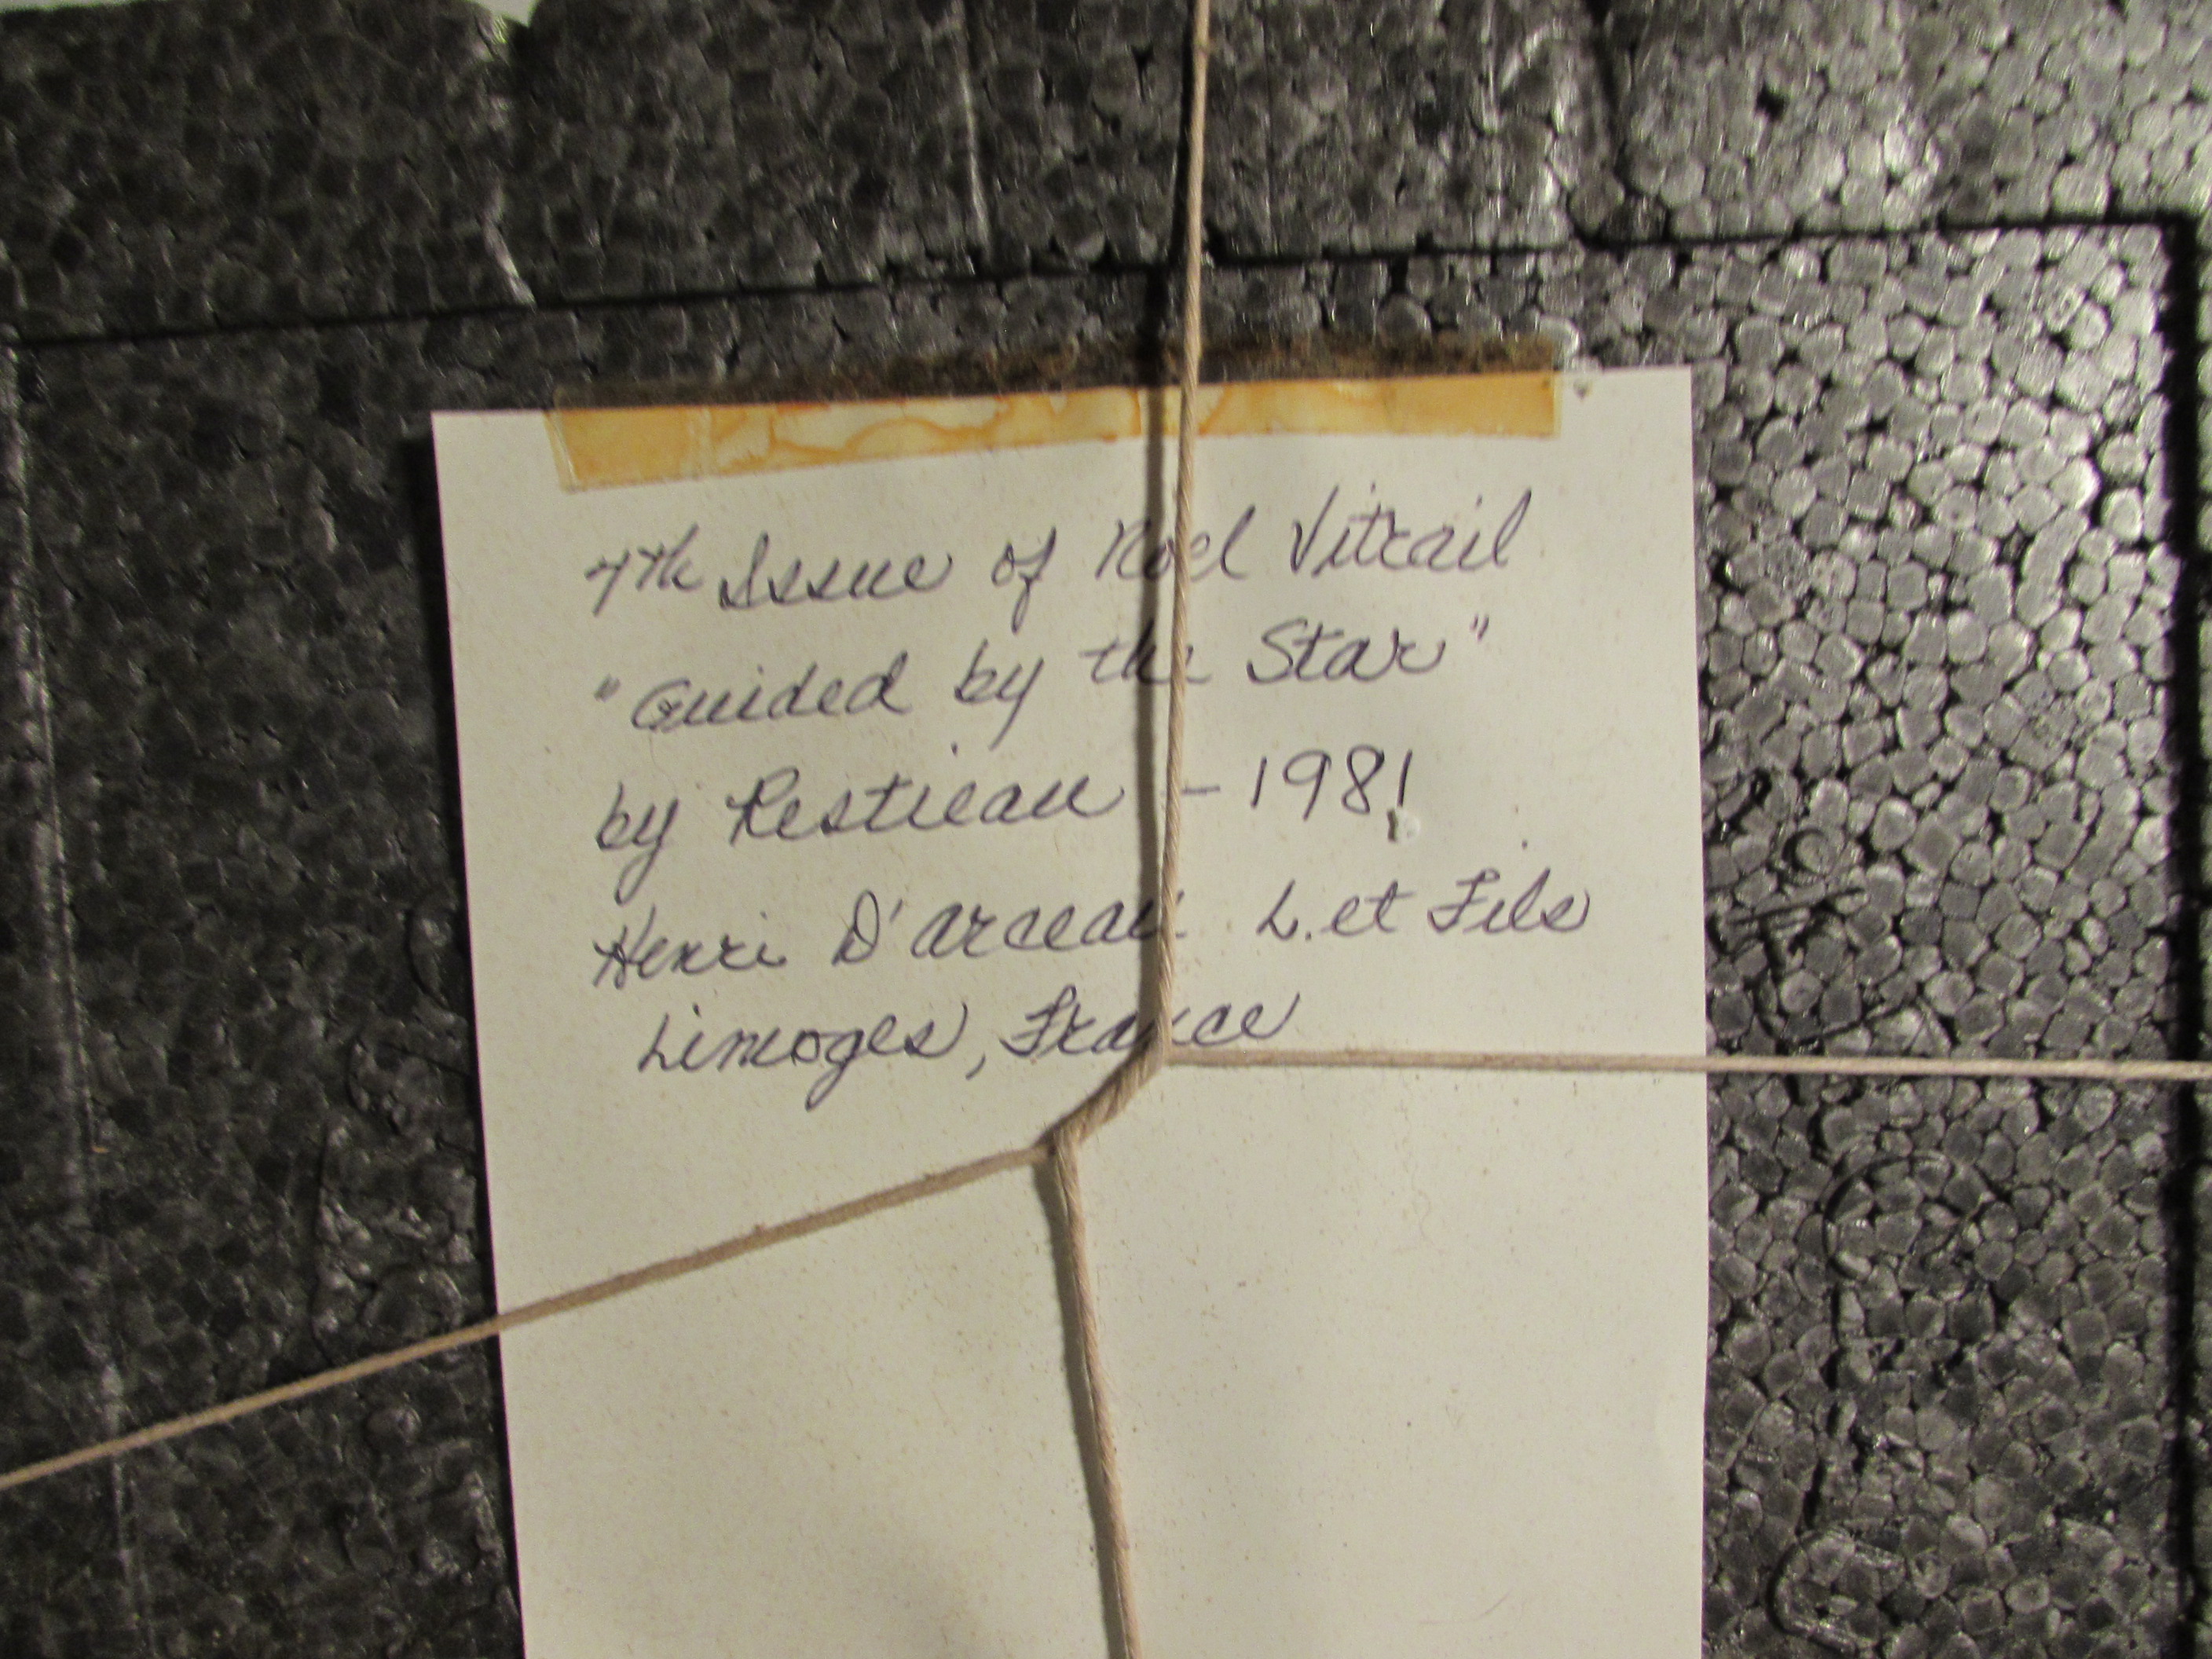 7th Issue of Noel Vitrail
"Guided by the Star"
by Restieau - 1981
Henri D'Arceau L. et Fils
Limoges, France